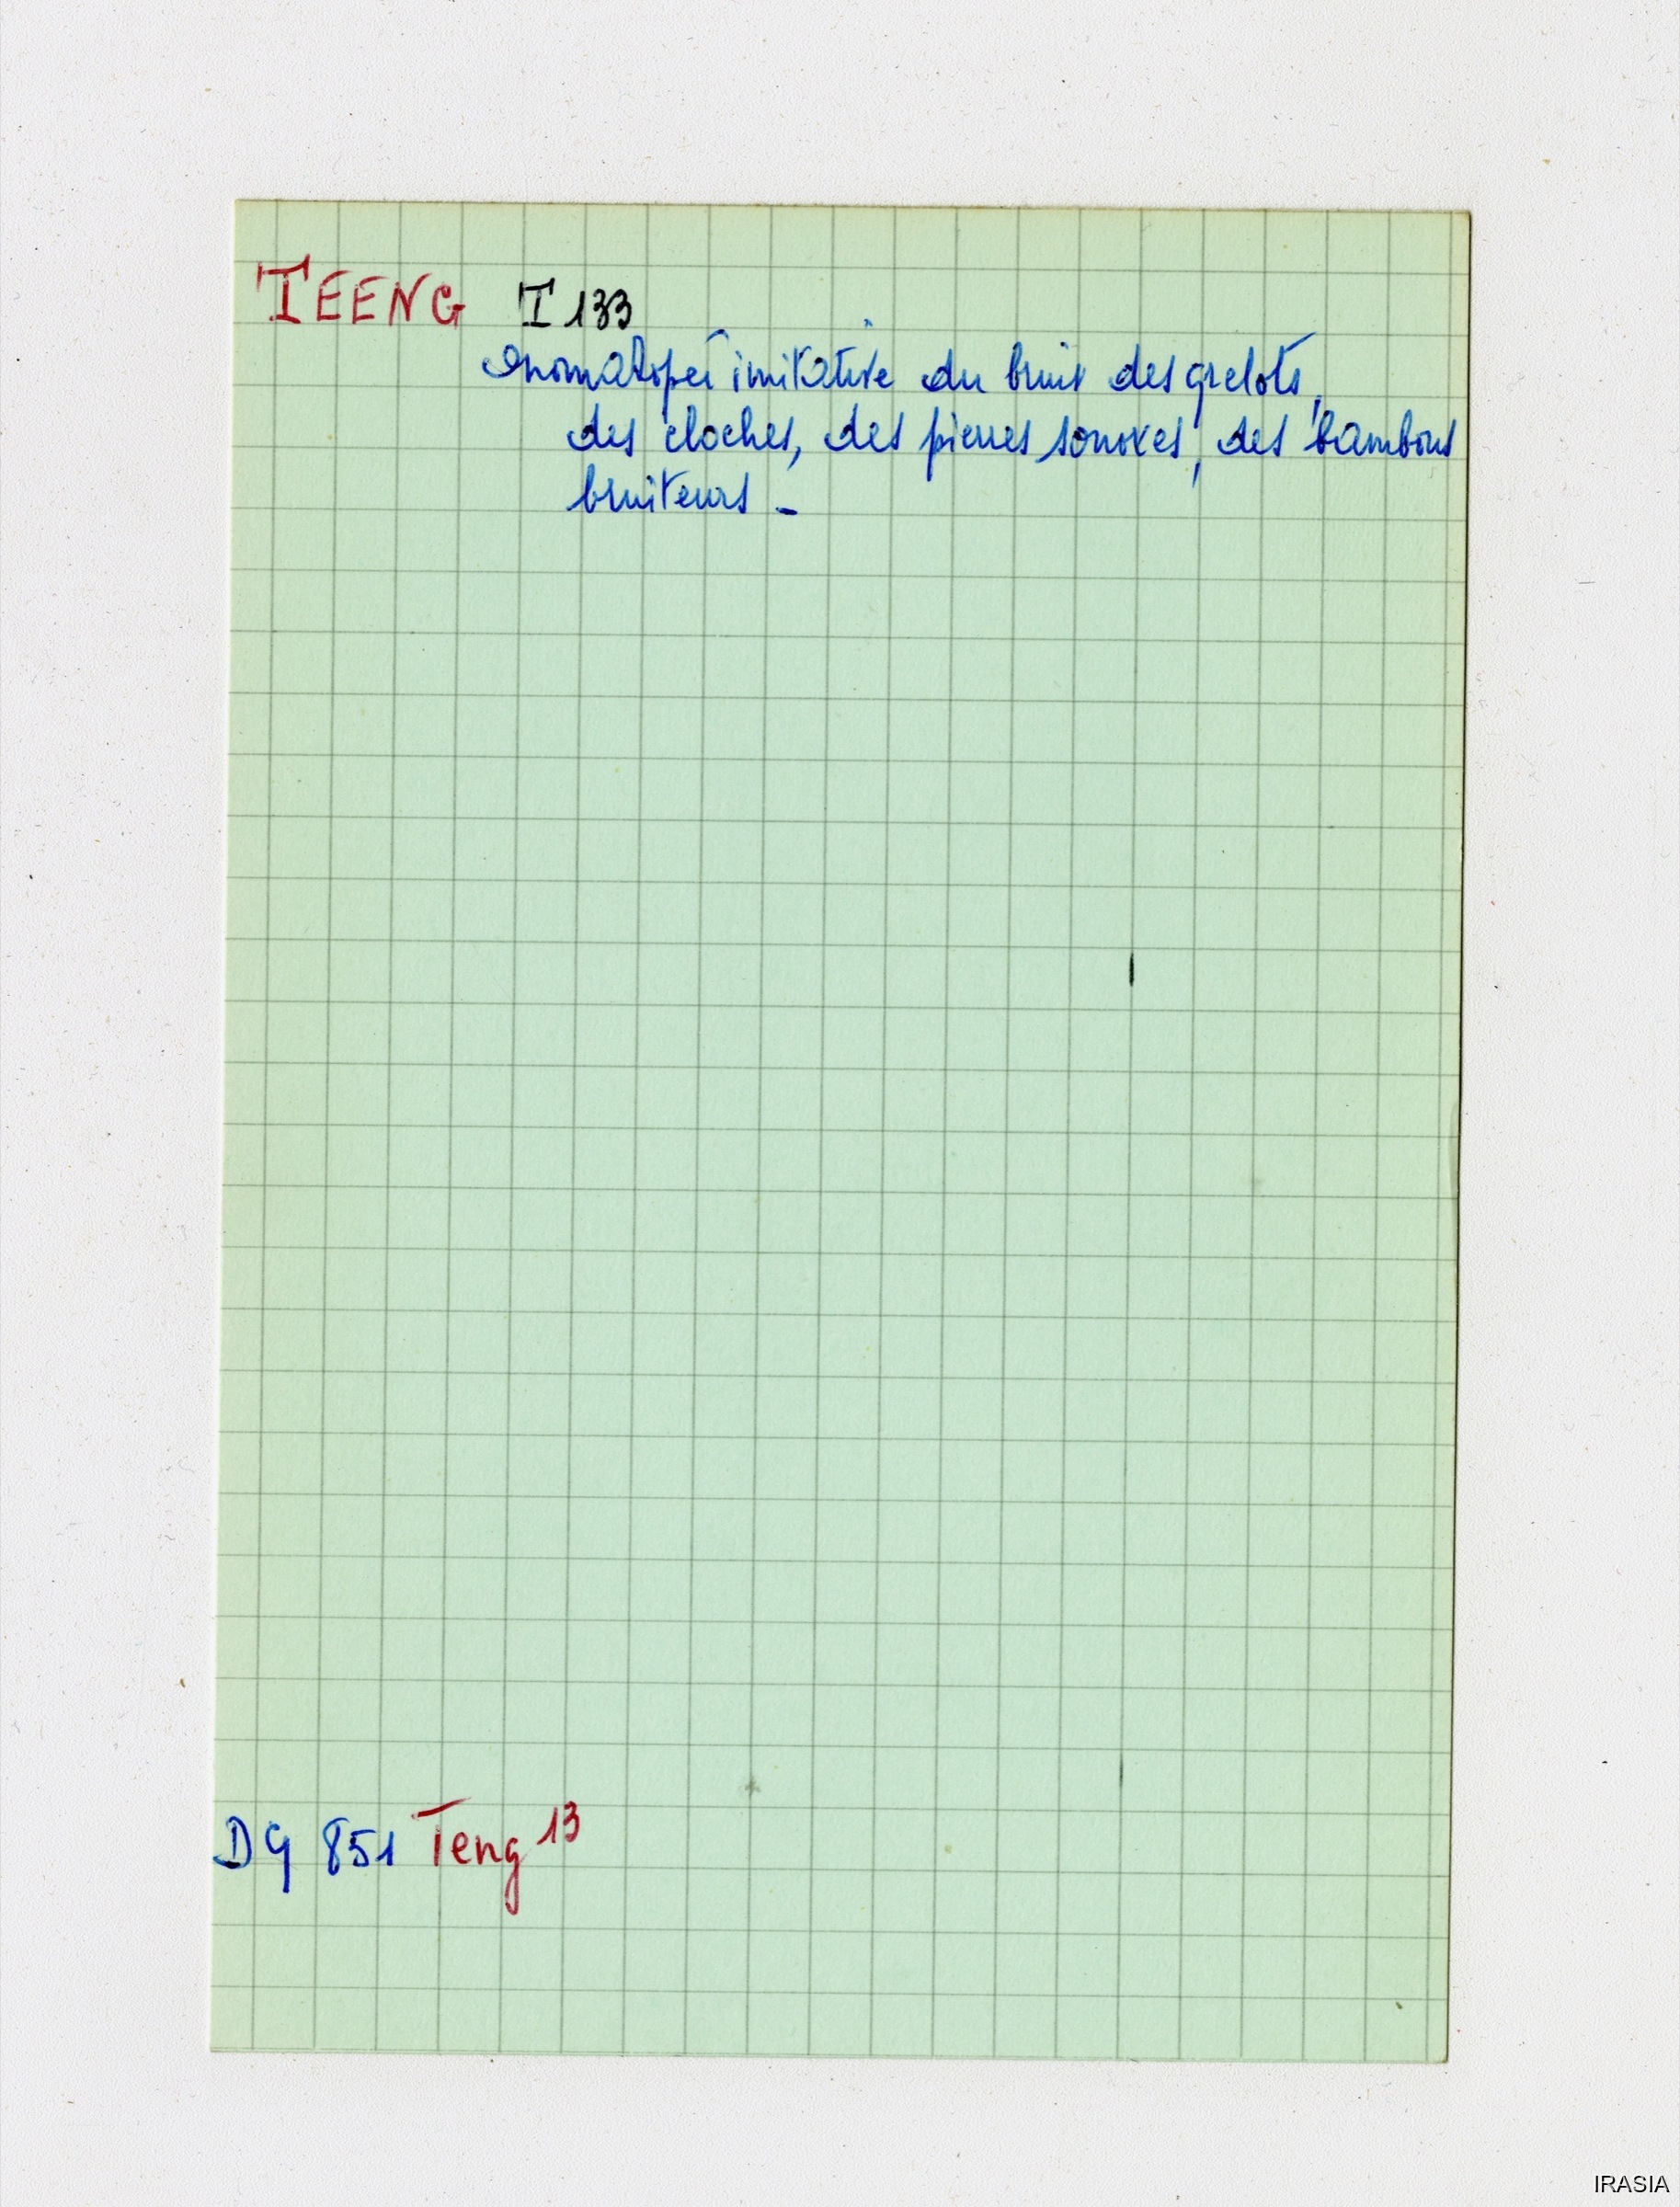 TEENG T 133
onomatopeï imitative du bruit des grelots,
des cloches, des pierres sonores, des bambous
bruiteurs -
DG 851 Teng 13
IRASIA